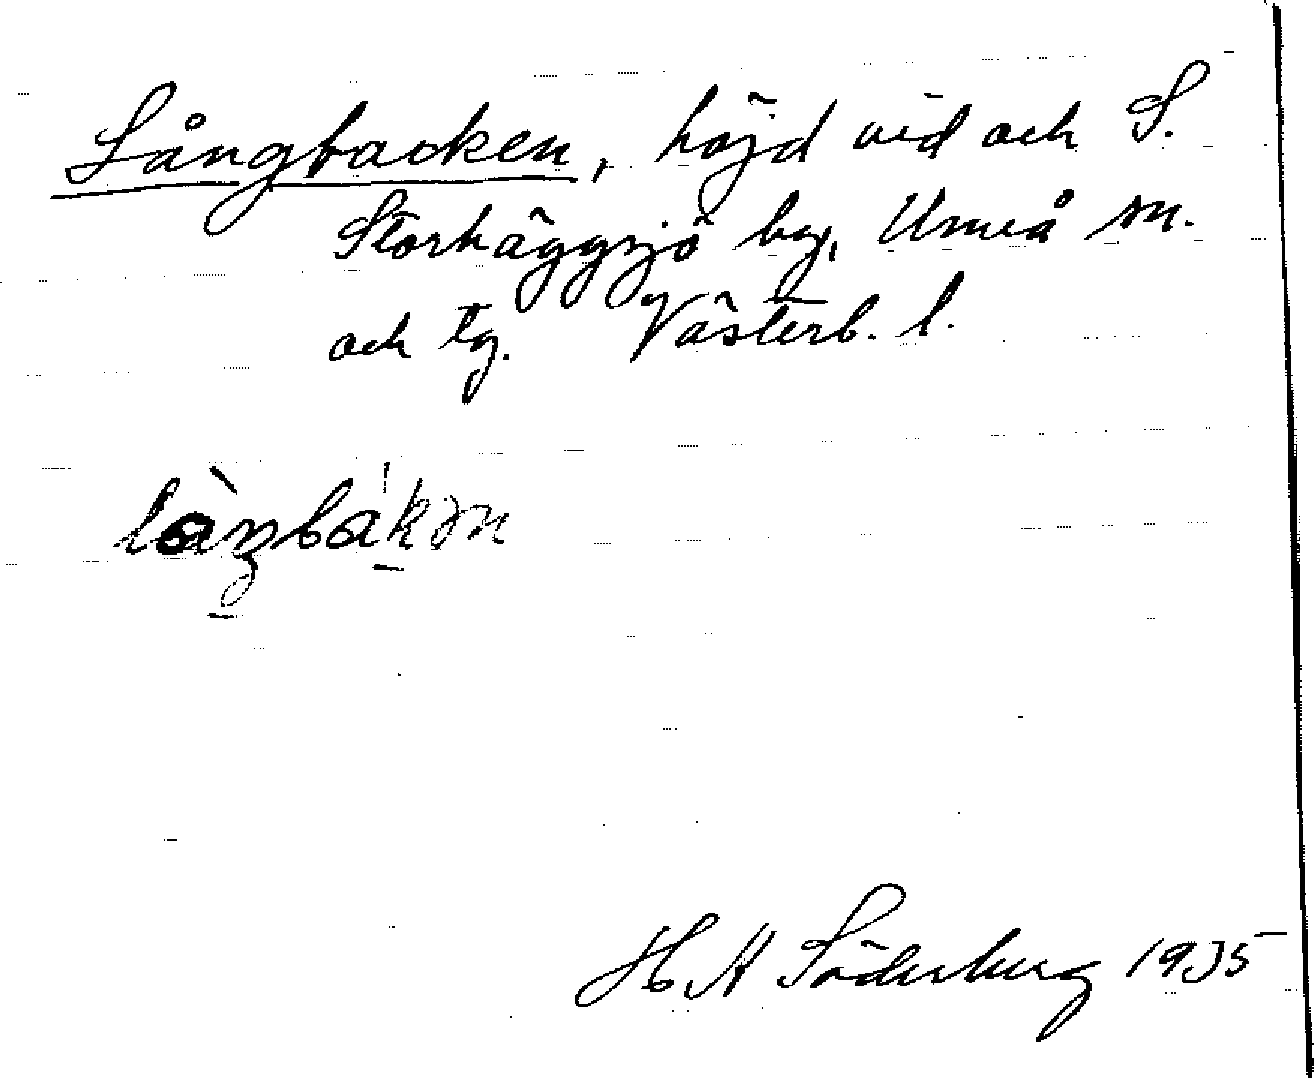 Långbacken, höjd vid och S.
Storhäggsjö by, Umeå sn.
och tg. Västerb. l.
H A Söderberg 1935